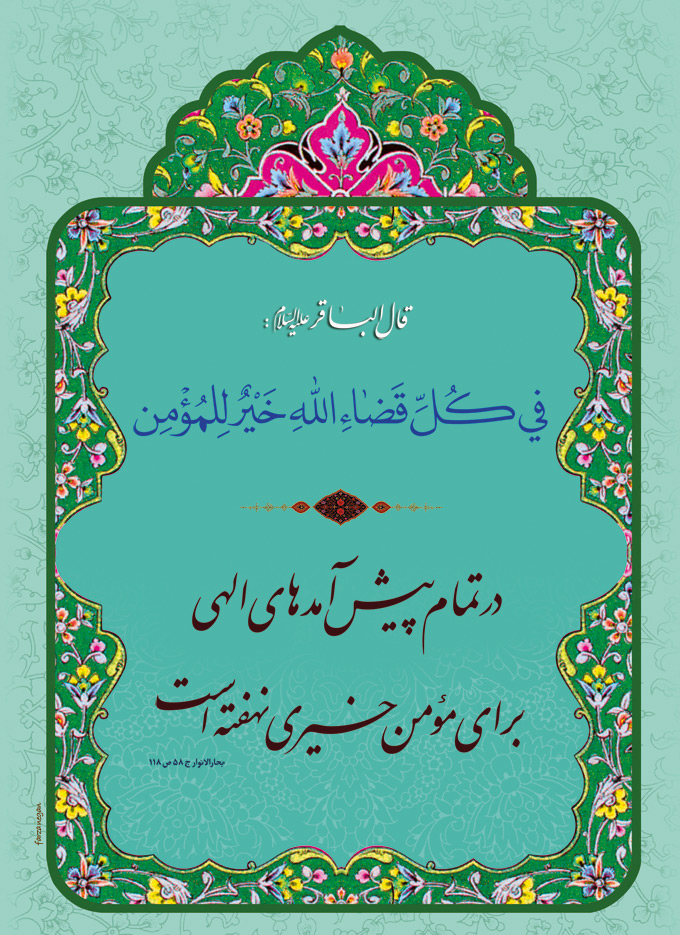 قال الباقر علیه السلام :
في كُلِّ قَضاءِ اللهِ خَيْرٌ لِلمُؤْمِن
در تمام پیش آمدهای الهی
برای مؤمن خیری نهفته است
بحارالانوار ج ۵۸ ص ۱۱۸
farzanegan